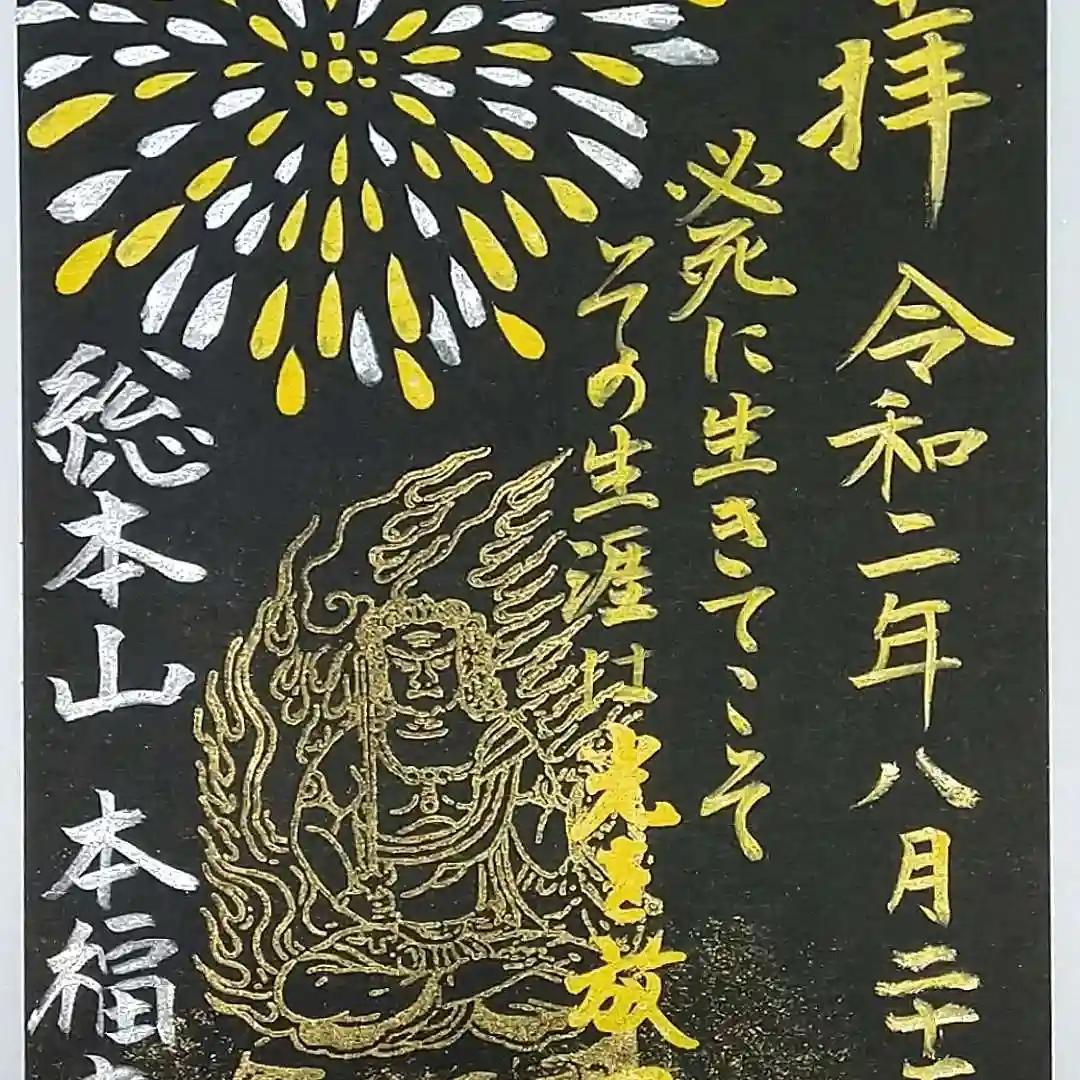 拝
令和二年八月二十
必死に生きてこそ
その生涯は光を放
総本山 本福